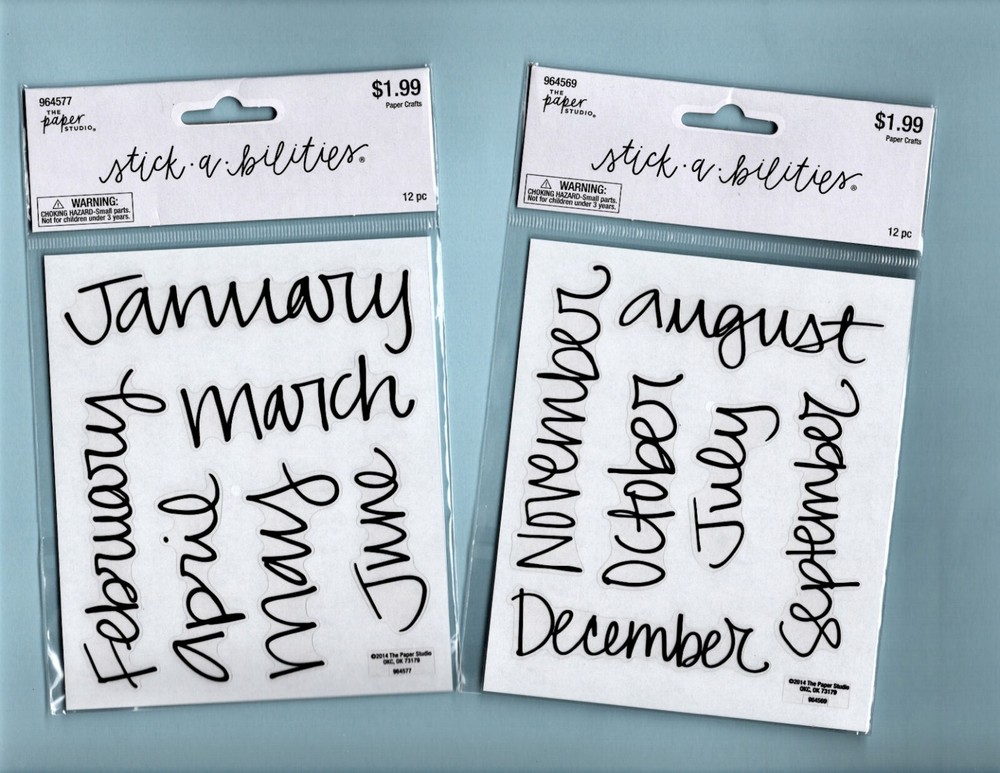 964577
THE
paper
STUDIO®
$1.99
Paper Crafts
stick·a·bilities®
WARNING:
CHOKING HAZARD-Small parts.
Not for children under 3 years.
12 pc
January
February
march
april
may
June
©2014 The Paper Studio
OKC, OK 73179
964577
964569
THE
paper
STUDIO®
$1.99
Paper Crafts
stick·a·bilities®
WARNING:
CHOKING HAZARD-Small parts.
Not for children under 3 years.
12 pc
November
august
October
July
September
December
©2014 The Paper Studio
OKC, OK 73179
964569